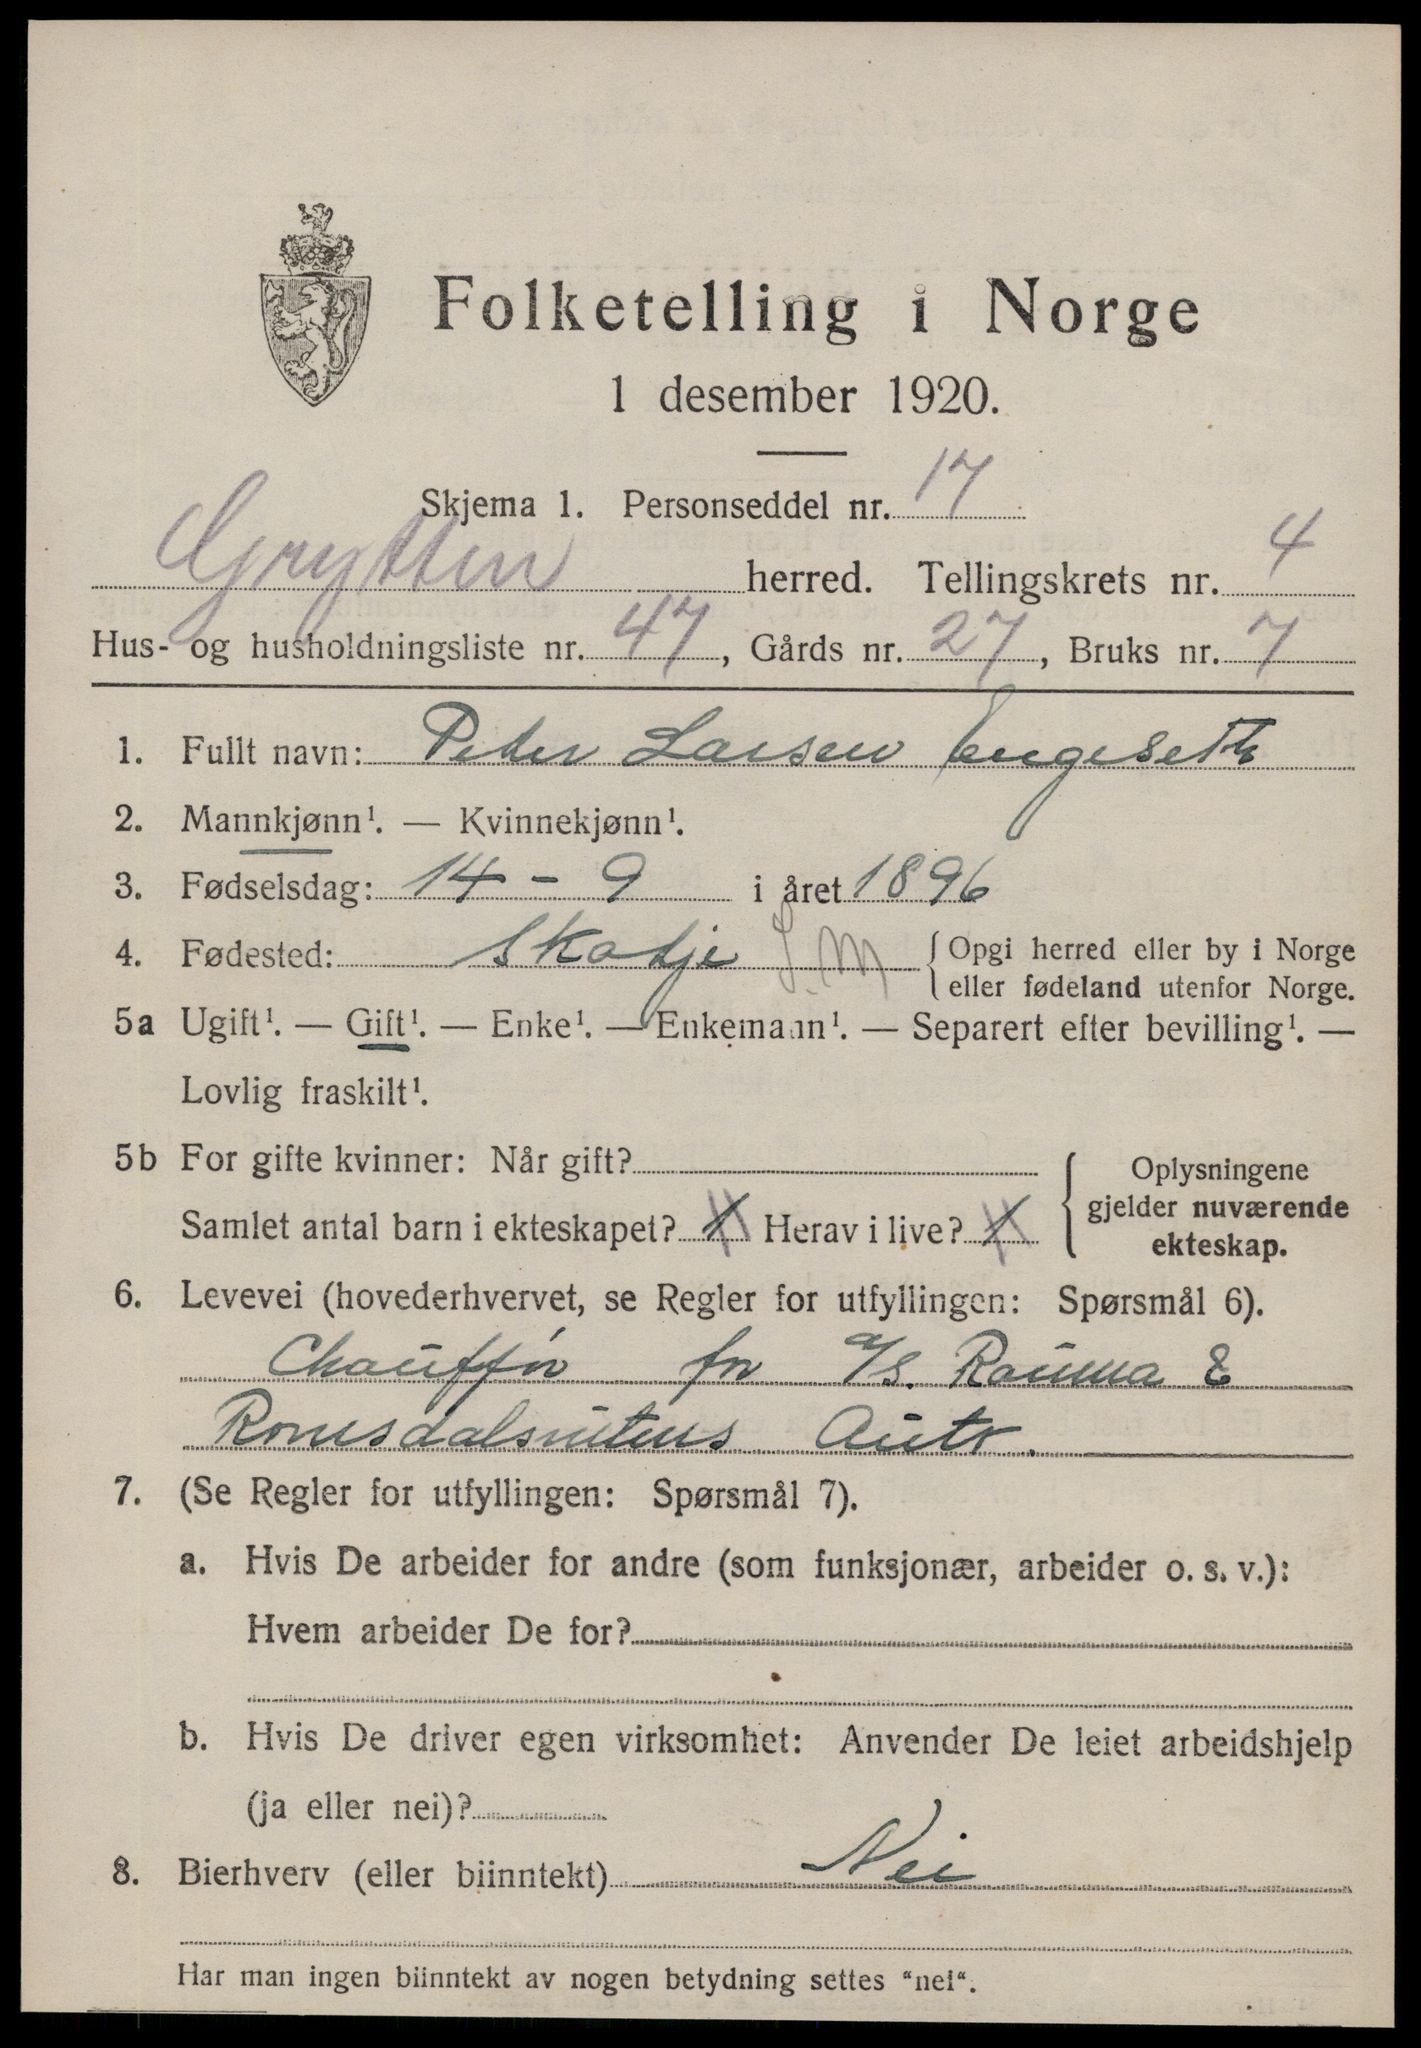 Folketelling i Norge
1 desember 1920.
Skjema 1. Personseddel nr. 17
Grytten herred. Tellingskrets nr. 4
Hus- og husholdningsliste nr. 47, Gårds nr. 27, Bruks nr. 7
1. Fullt navn: Peter Larsen Engeseth
2. Mannkjønn¹. — Kvinnekjønn¹.
3. Fødselsdag: 14 - 9 i året 1896
4. Fødested: Skodje S.M { Opgi herred eller by i Norge
eller fødeland utenfor Norge.
5a Ugift¹. — Gift¹. — Enke¹. — Enkemann¹. — Separert efter bevilling¹. —
Lovlig fraskilt¹.
5b For gifte kvinner: Når gift?
Samlet antal barn i ekteskapet? 1 Herav i live? 1
{ Oplysningene
gjelder nuværende
ekteskap.
6. Levevei (hovederhvervet, se Regler for utfyllingen: Spørsmål 6).
Chauffør for A/S. Rauma &
Romsdalsrutens Auto.
7. (Se Regler for utfyllingen: Spørsmål 7).
a. Hvis De arbeider for andre (som funksjonær, arbeider o. s. v.):
Hvem arbeider De for?
b. Hvis De driver egen virksomhet: Anvender De leiet arbeidshjelp
(ja eller nei)?
8. Bierhverv (eller biinntekt) Nei
Har man ingen biinntekt av nogen betydning settes "nei".